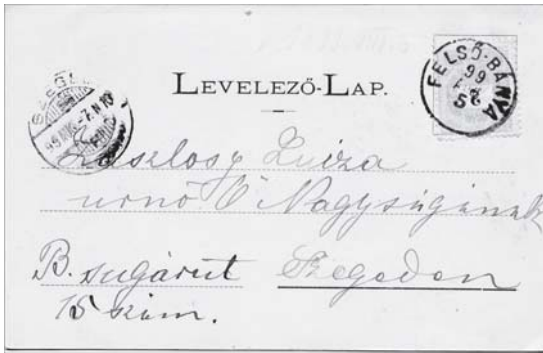 LEVELEZŐ-LAP.
FELSŐ-BÁNYA
99
SZEGED
Lászlosy Luiza
urnő Ő Nagyságának
B. sugárut Szegeden
15 szám.